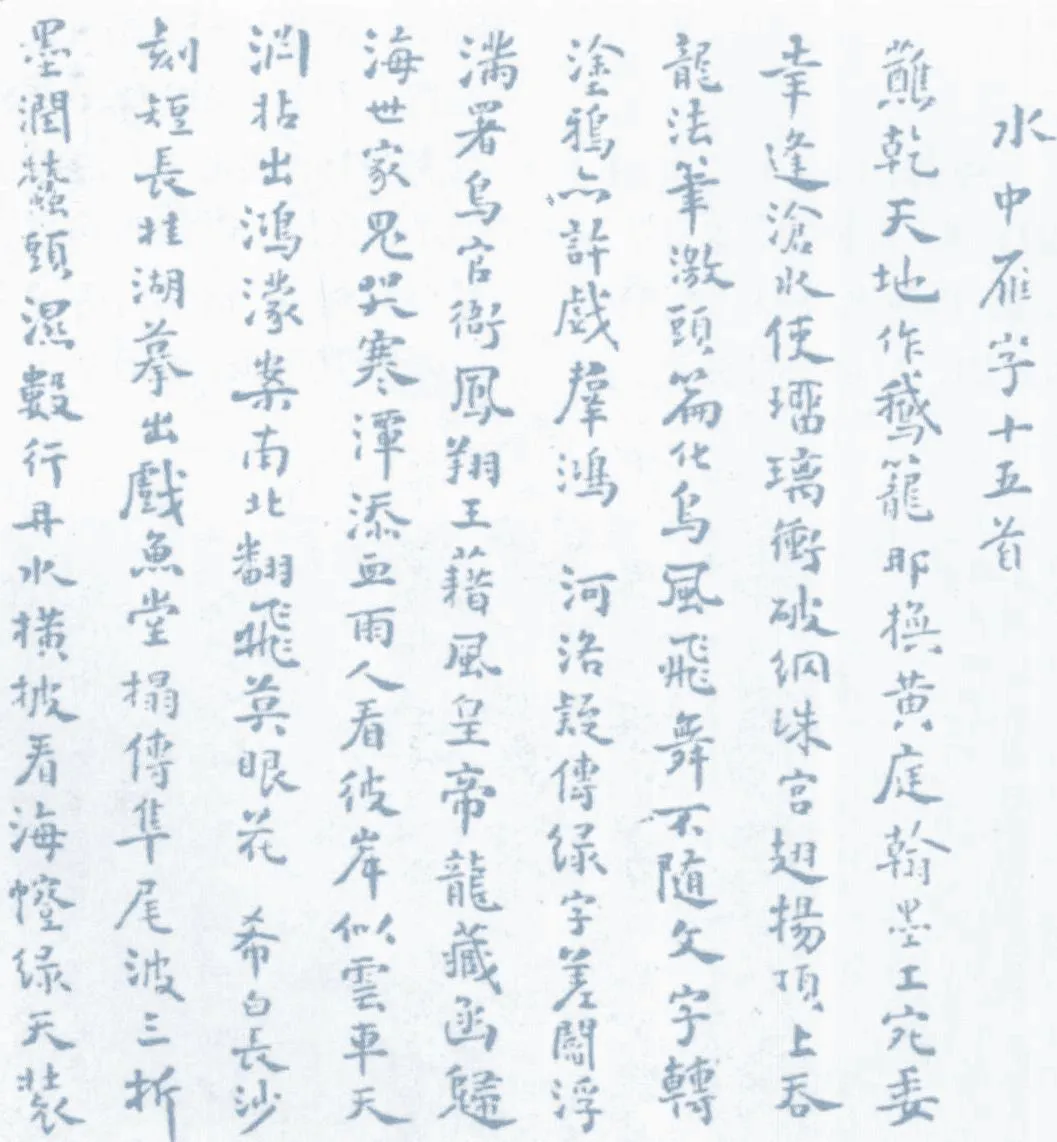 水中雁字十五首
蘸乾天地作鵝籠耶換黄庭翰墨工宛委
幸逢滄水使瑠璃衝破網珠宮翅揚頂上吞
龍法筆激頭篇化鳥風飛舞不隨文字轉
塗鴉亦許戲羣鴻 河洛疑傳緑字差闘浮
滿署鳥官衙鳳翔王藉風皇帝龍藏函歸
海世家鬼哭寒潭添血雨人看彼岸似雲車天
淵拈出鴻濛案南北翻飛莫眼花 希白長沙
刻短長挂湖摹出戲魚堂搨傳隼尾波三折
墨潤蠶頭濕數行丹水横披看海幢緑天裝